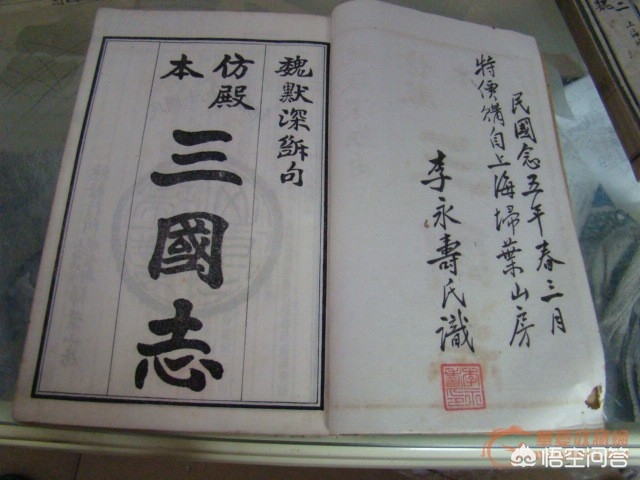 民國念五年春三月
特價購自上海埽葉山房
李永壽氏識
魏默深斷句
仿殿
本
三國志
悟空问答